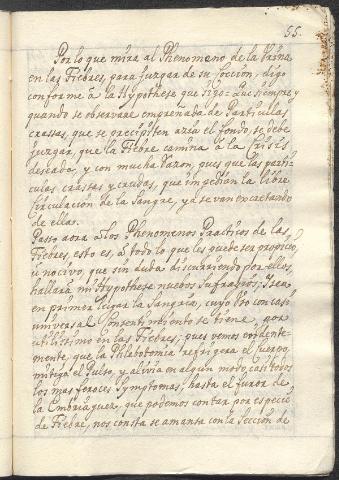 55.
Por lo que mira al Phenomeno de la Orina
en las Fiebres, para juzgar de su Coccion, digo
conforme â la Hypothese que sigo: que siempre y
quando se observare emprenada de Particulas
crassas, que se precipiten azia el fondo, se debe
juzgar, que la Fiebre camina â la Crisis
deseada, y con mucha razon, pues que las parti
culas crassas y crudas, que impedian la libre
circulacion de la Sangre, ya se van
de ellas.
Passo aora â los Phenomenos Practicos de las
Fiebres, esto es, â todo lo que les puede ser propicio,
û nocivo, que sin duda discurriendo por ellos,
hallarà mi Hypothese nuebos Sufragios; Sea
en primer lugar la Sangria, cuyo uso con casi
universal Consentimiento se tiene por
utilissimo en las Fiebres; pues vemos evidente-
mente, que la Phlebotomia refrigera el Cuerpo,
mitiga el Pulso, y alivia en algun modo casi todos
los mas feroces Symptomas; hasta el furor de
la Embriaguez, que podemos contar por especie
de Fiebre, nos consta se amansa con la Seccion de